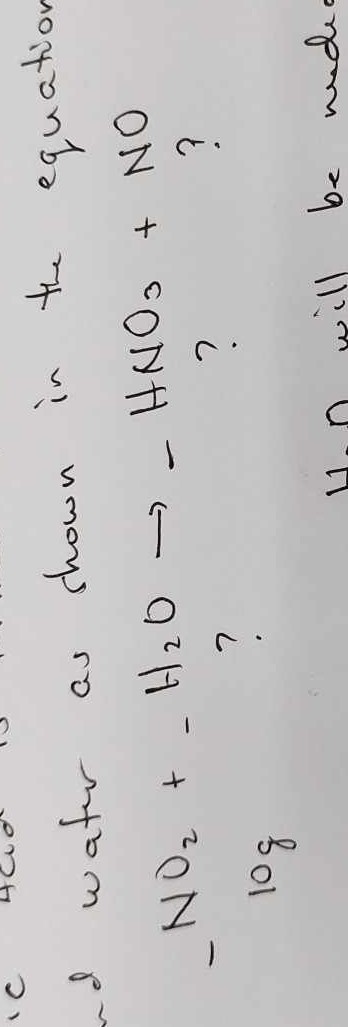 ic Acid is
nd water as shown in the equation
_NO₂ + - H₂O → - HNO₃ + NO
10g ? ? ?
H₂O will be